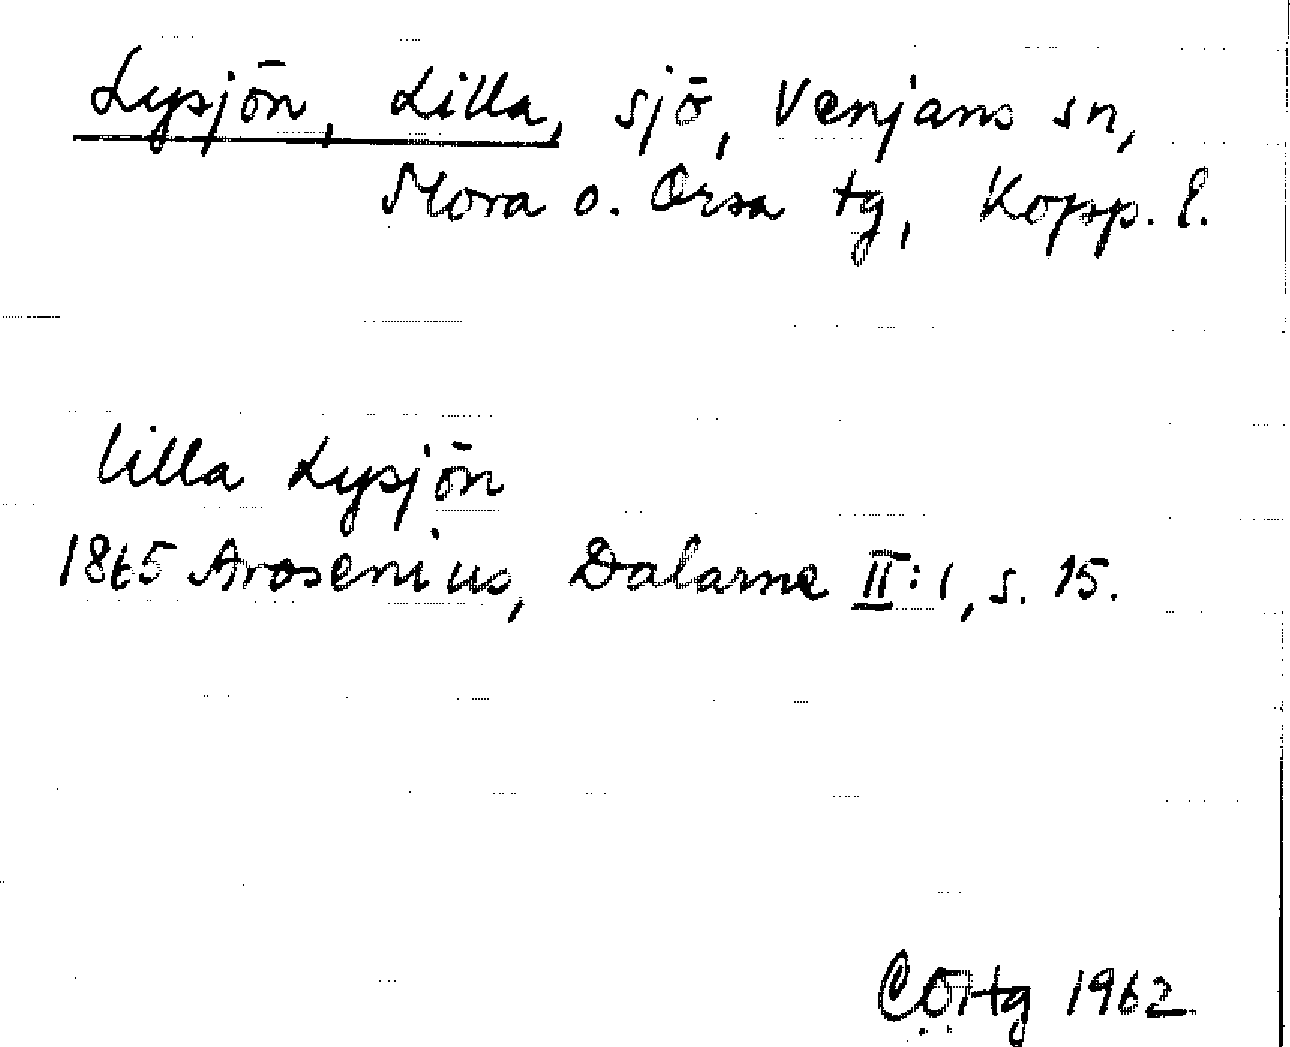 Lysjön, Lilla, sjö, Venjans sn,
Mora o. Orsa tg, Kopp. l.
Lilla Lysjön
1865 Arosenius, Dalarne II:1, s. 15.
1962